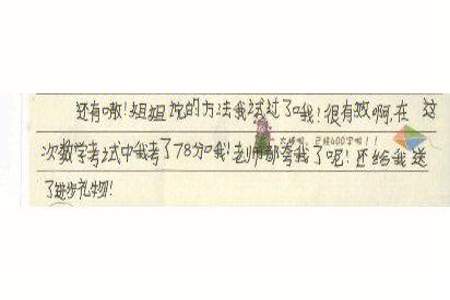 还有噢!姐姐说的方法我试过了哦!很有效啊,在 这
次数学考试中我考了78分哦!老师都夸我了呢!还给我送
了进步礼物!